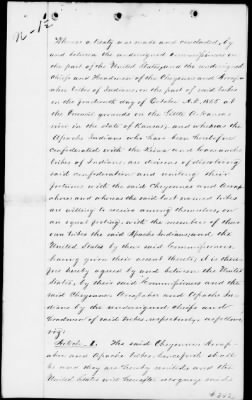 Whereas a treaty was made and concluded, by
and between the undersigned Commissioners on
the part of the United States, and the undersigned
Chiefs and Headmen of the Cheyenne and Arrap-
ahoe tribes of Indians, on the part of said tribes
on the fourteenth day of October A.D. 1865 at
the Council grounds on the Little Arkansas
river in the State of Kansas, and whereas the
Apache Indians who have been heretofore
confederated with the Kiowa and Camanche
tribes of Indians, are desirous of dissolving
said confederation and uniting their
fortunes with the said Cheyennes and Arrap-
ahoes and whereas the said last named tribes
are willing to receive among themselves, on
an equal footing with the members of their
own tribes the said Apache Indians, and the
United States by their said Commissioners
having given their assent thereto; it is there-
fore hereby agreed by and between the United
States, by their said Commissioners and the
said Cheyennes Arrapahoes and Apache In-
dians by the undersigned Chiefs and
Headmen of said tribes, respectively, as follows
viz:
Article 1. The said Cheyenne Arrap-
ahoe and Apache tribes, henceforth shall
be and they are hereby united, and the
United States will hereafter recognize said